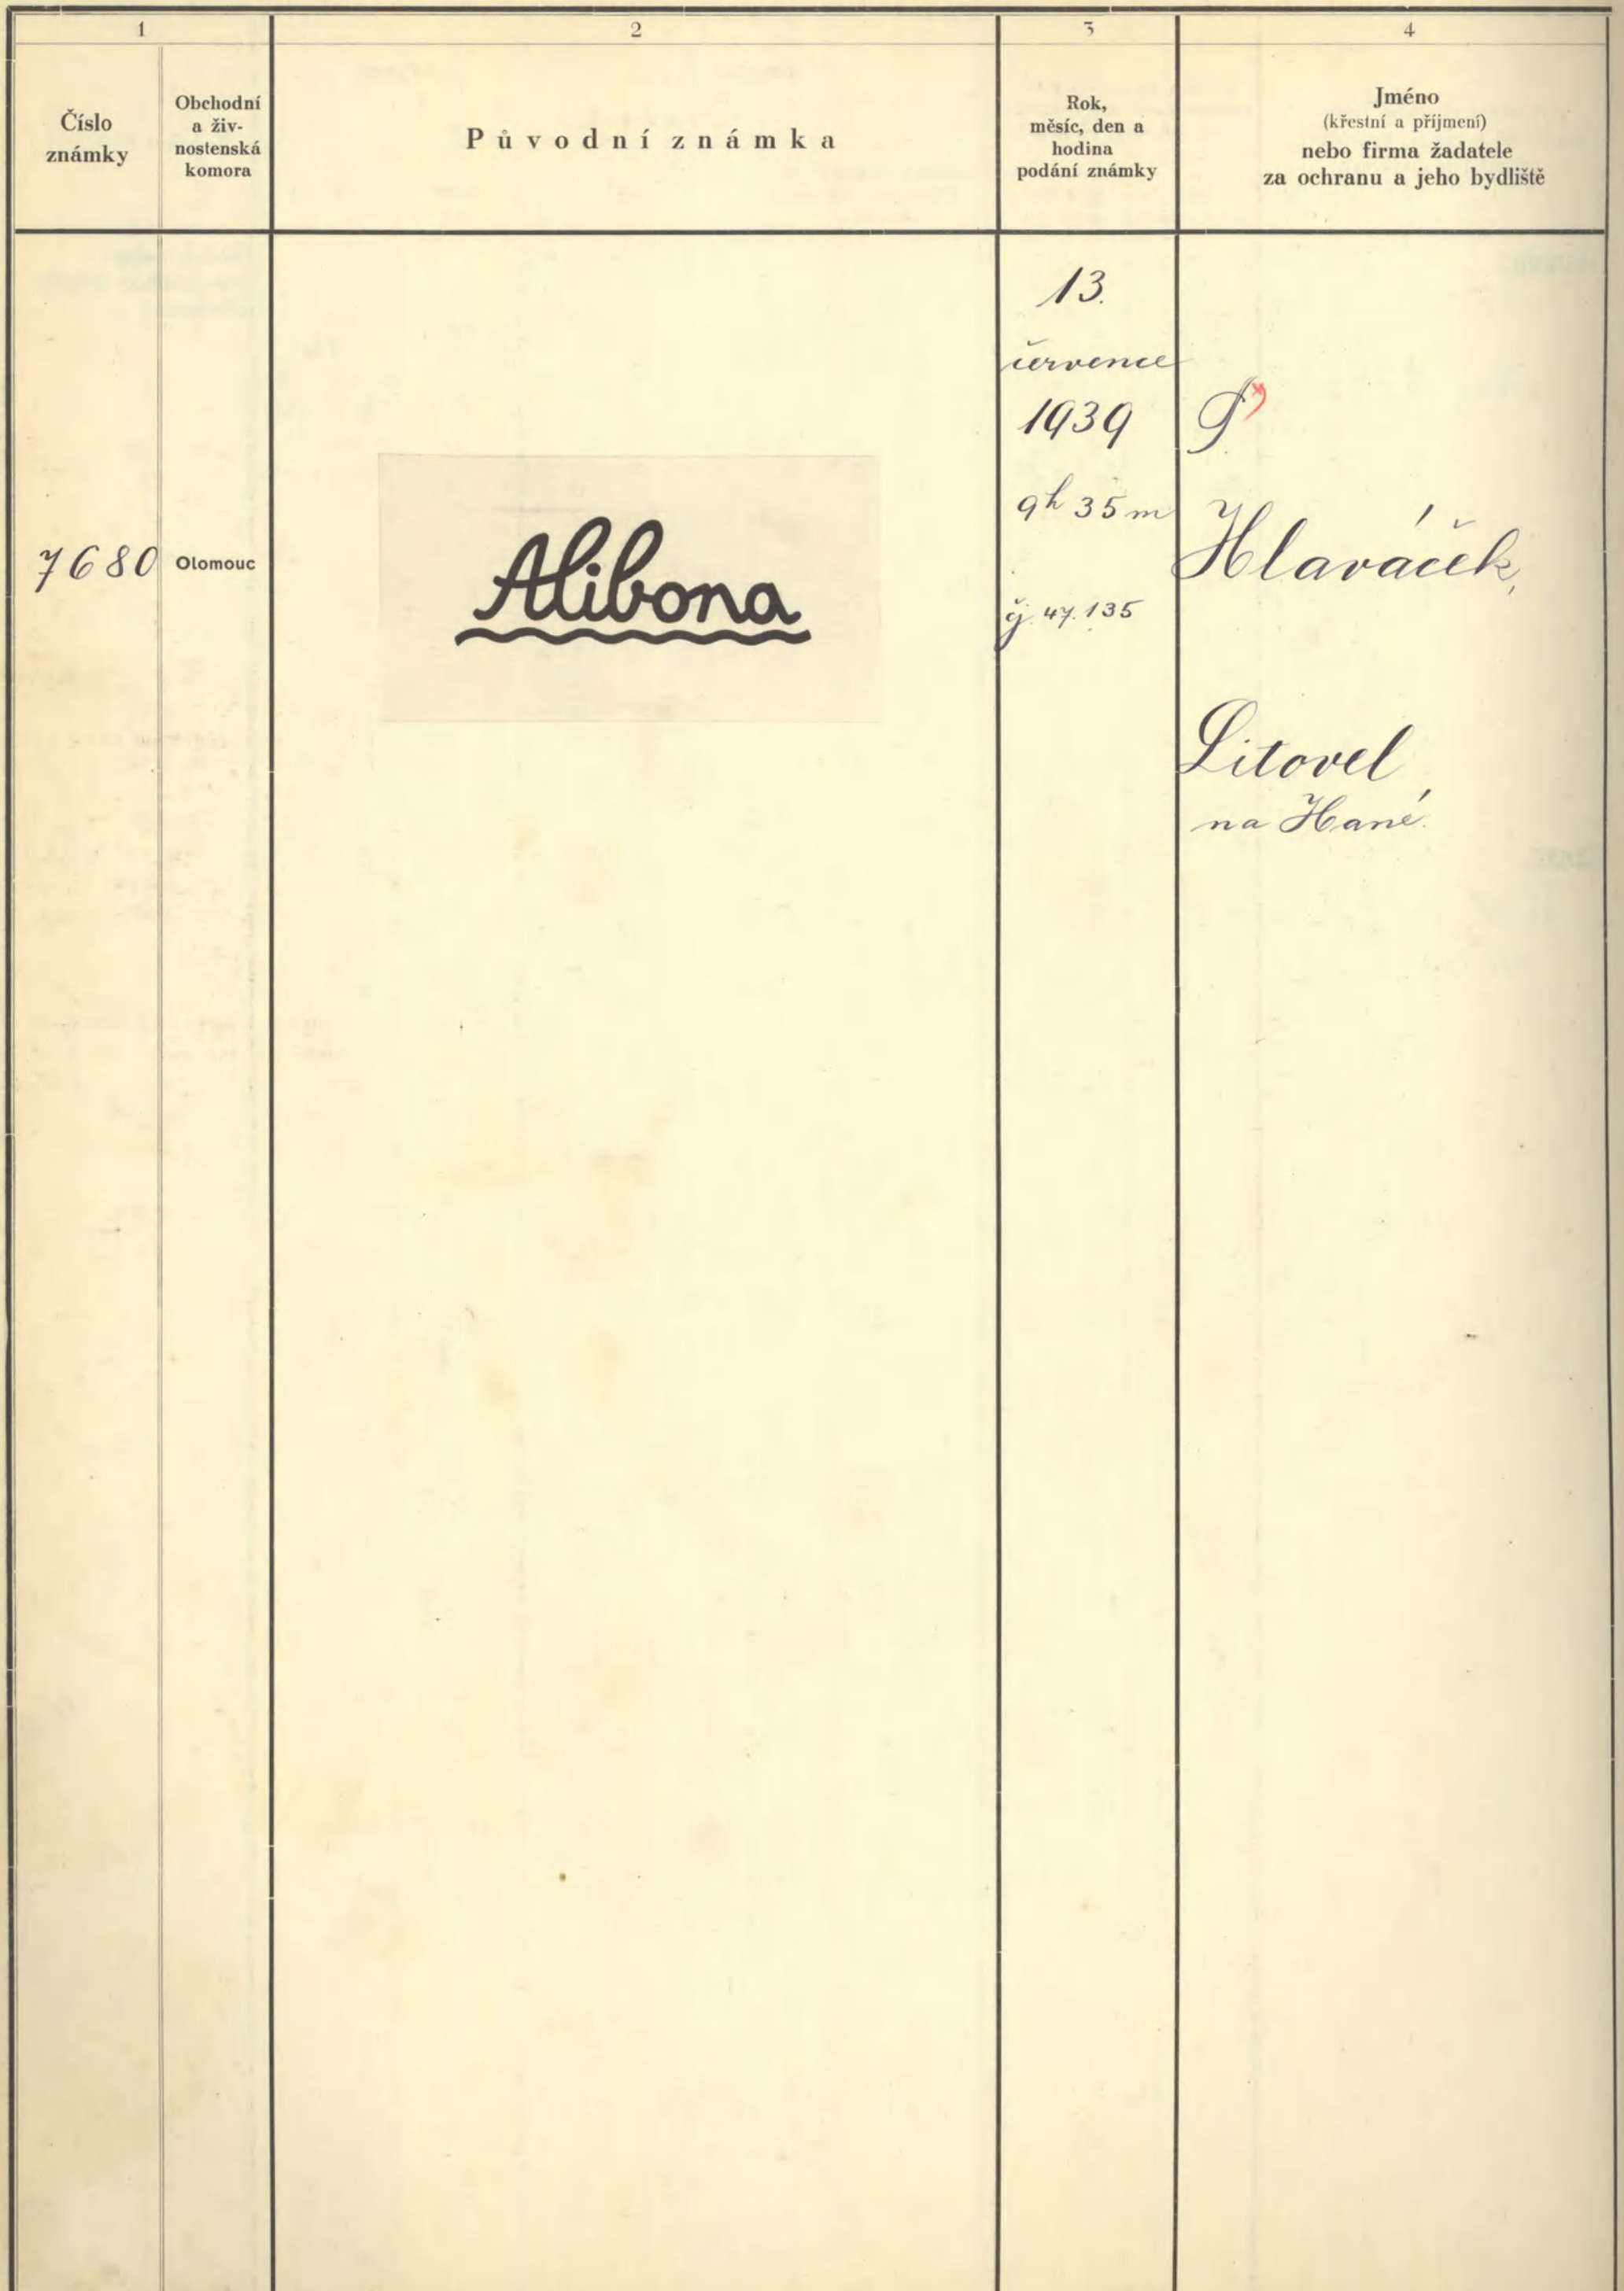 1
2
3
4
Číslo
známky
Obchodní
a živ-
nostenská
komora
Původní známka
Rok,
měsíc, den a
hodina
podání známky
Jméno
(křestní a příjmení)
nebo firma žadatele
za ochranu a jeho bydliště
7680
Olomouc
Alibona
13.
července
1939
9h 35m
čj. 47.135
Hlaváček,
Litovel,
na Hané.